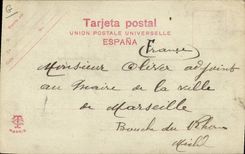 Tarjeta postal
UNION POSTALE UNIVERSELLE
ESPAÑA
(France)
Monsieur Oliver adjoint
au Maire de la ville
de Marseille
Bouche du Rhône
MADRID